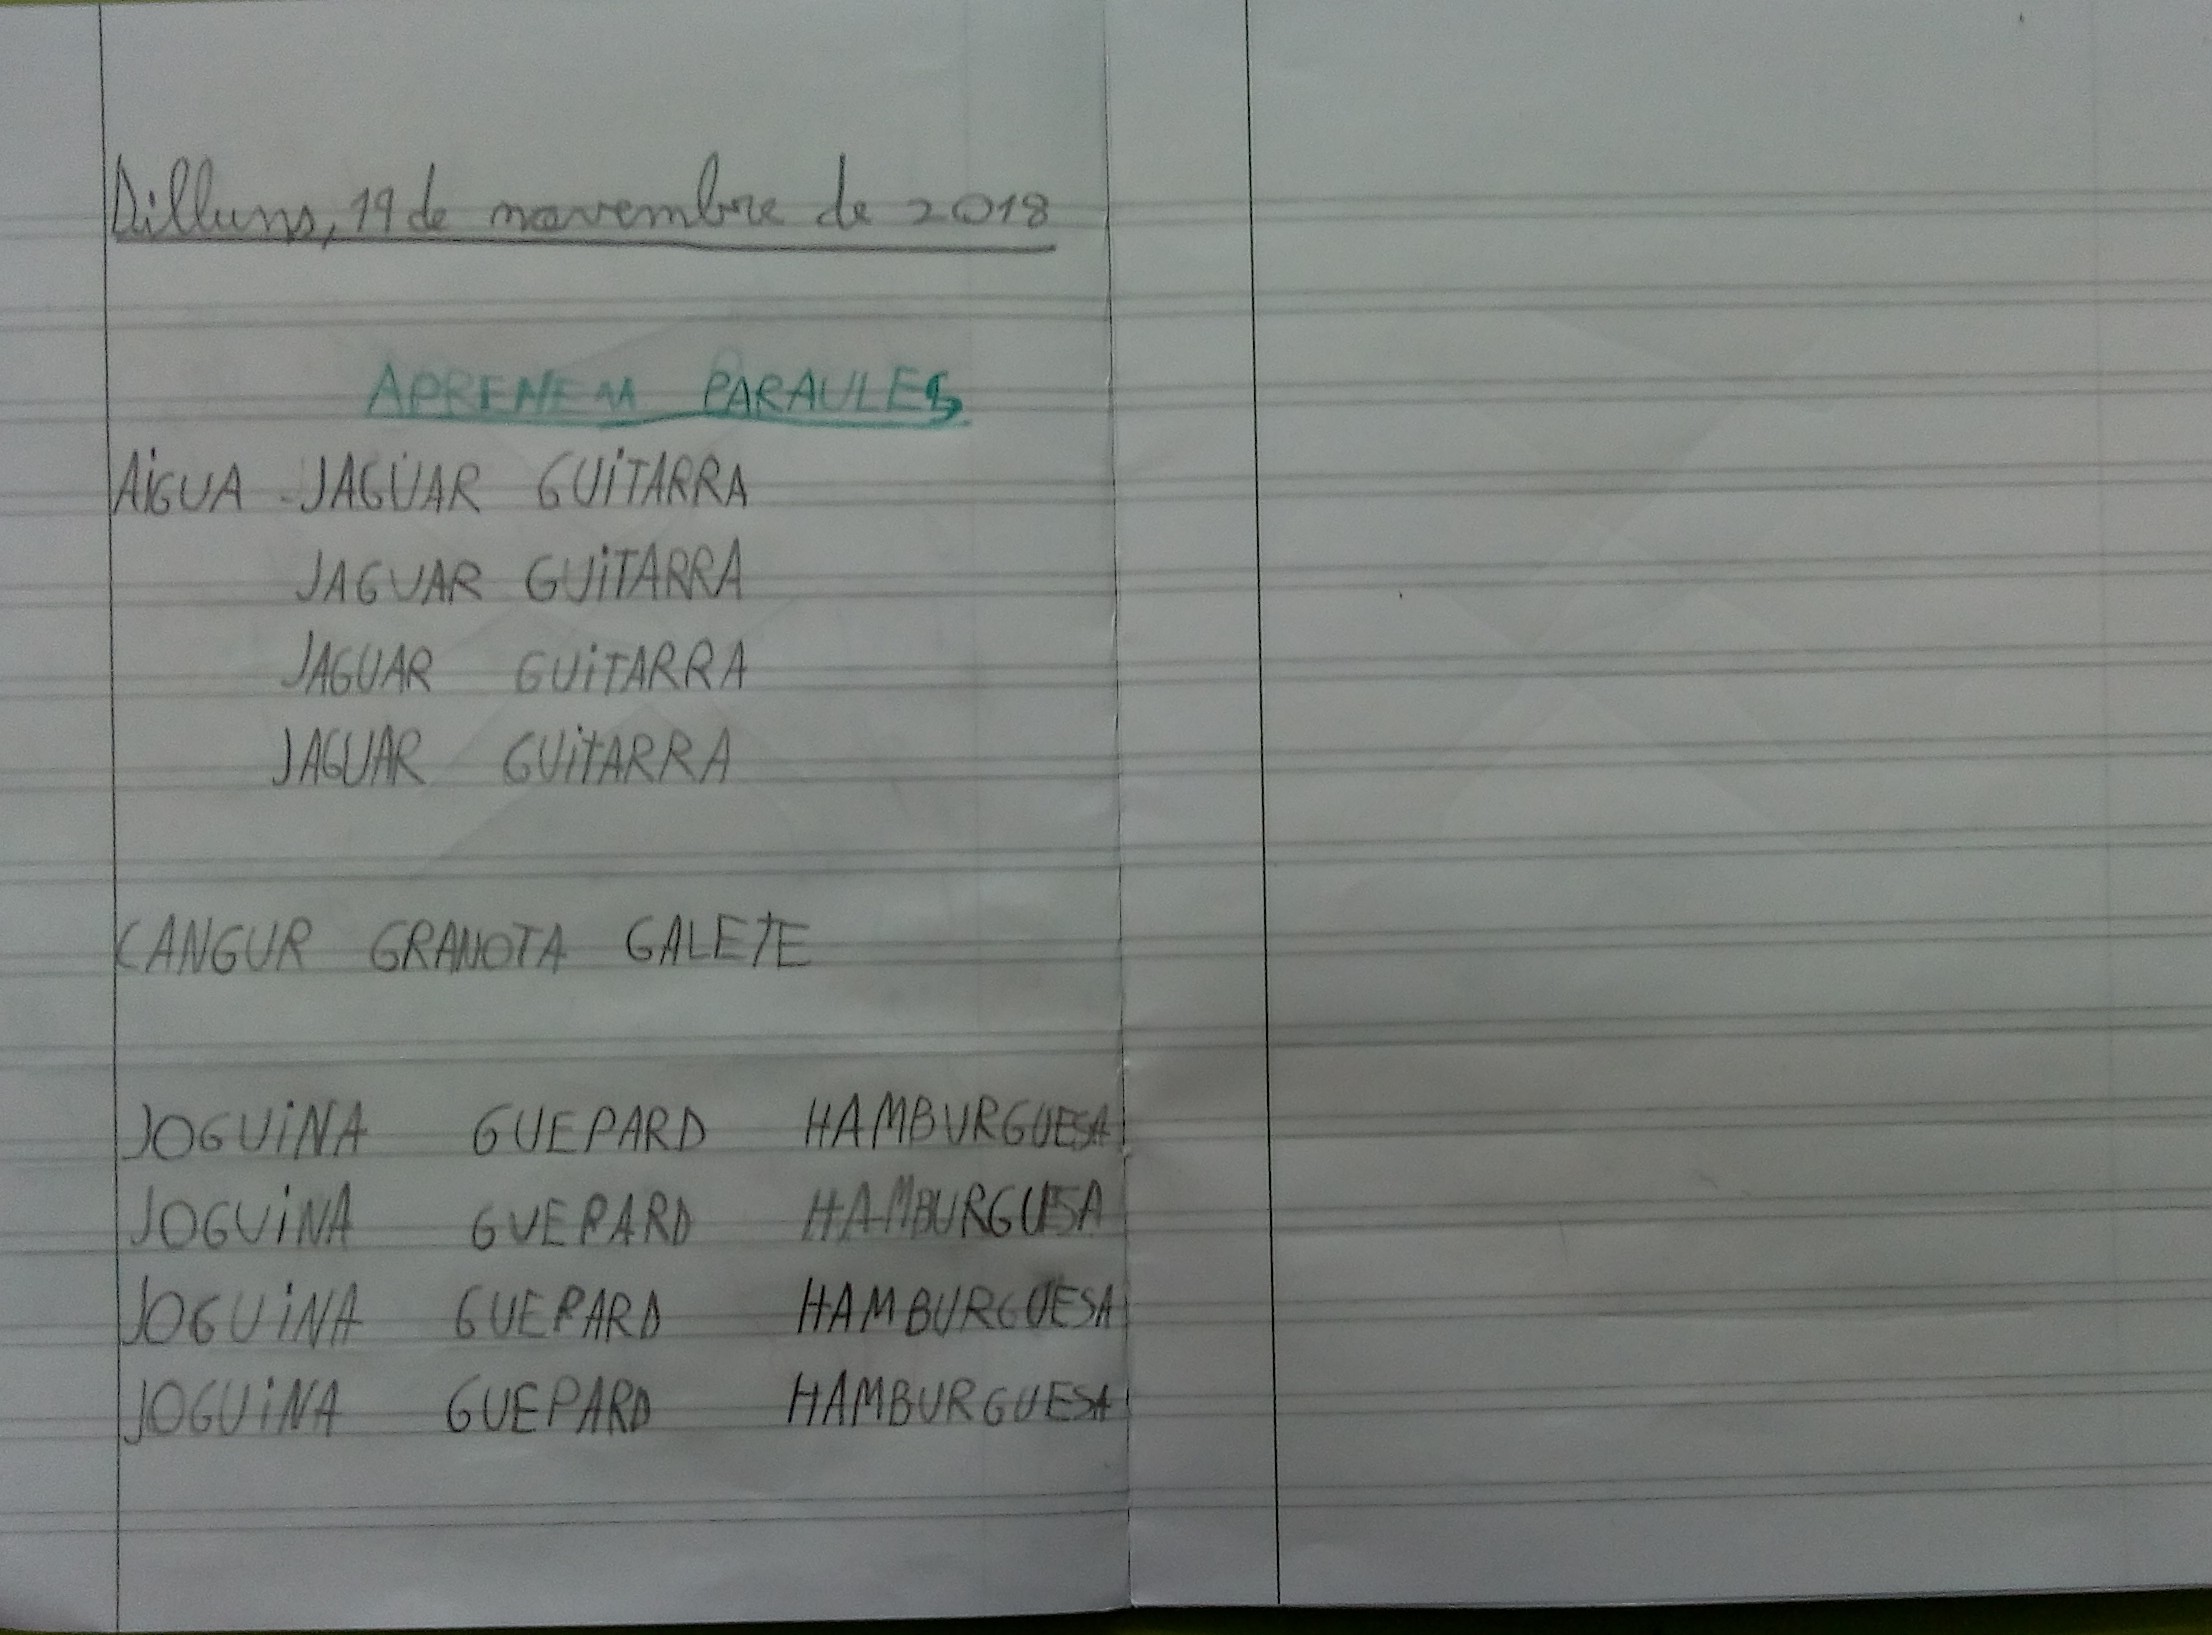 Dilluns, 19 de novembre de 2018
APRENEM PARAULES
AiGUA JAGUAR GUiTARRA
JAGUAR GUiTARRA
JAGUAR GUiTARRA
JAGUAR GUiTARRA
CANGUR GRANOTA GALETE
JOGUiNA GUEPARD HAMBURGUESA
JOGUiNA GUEPARD HAMBURGUSA
JOGUiNA GUEPARD HAMBURGUESA
JOGUiNA GUEPARD HAMBURGUESA